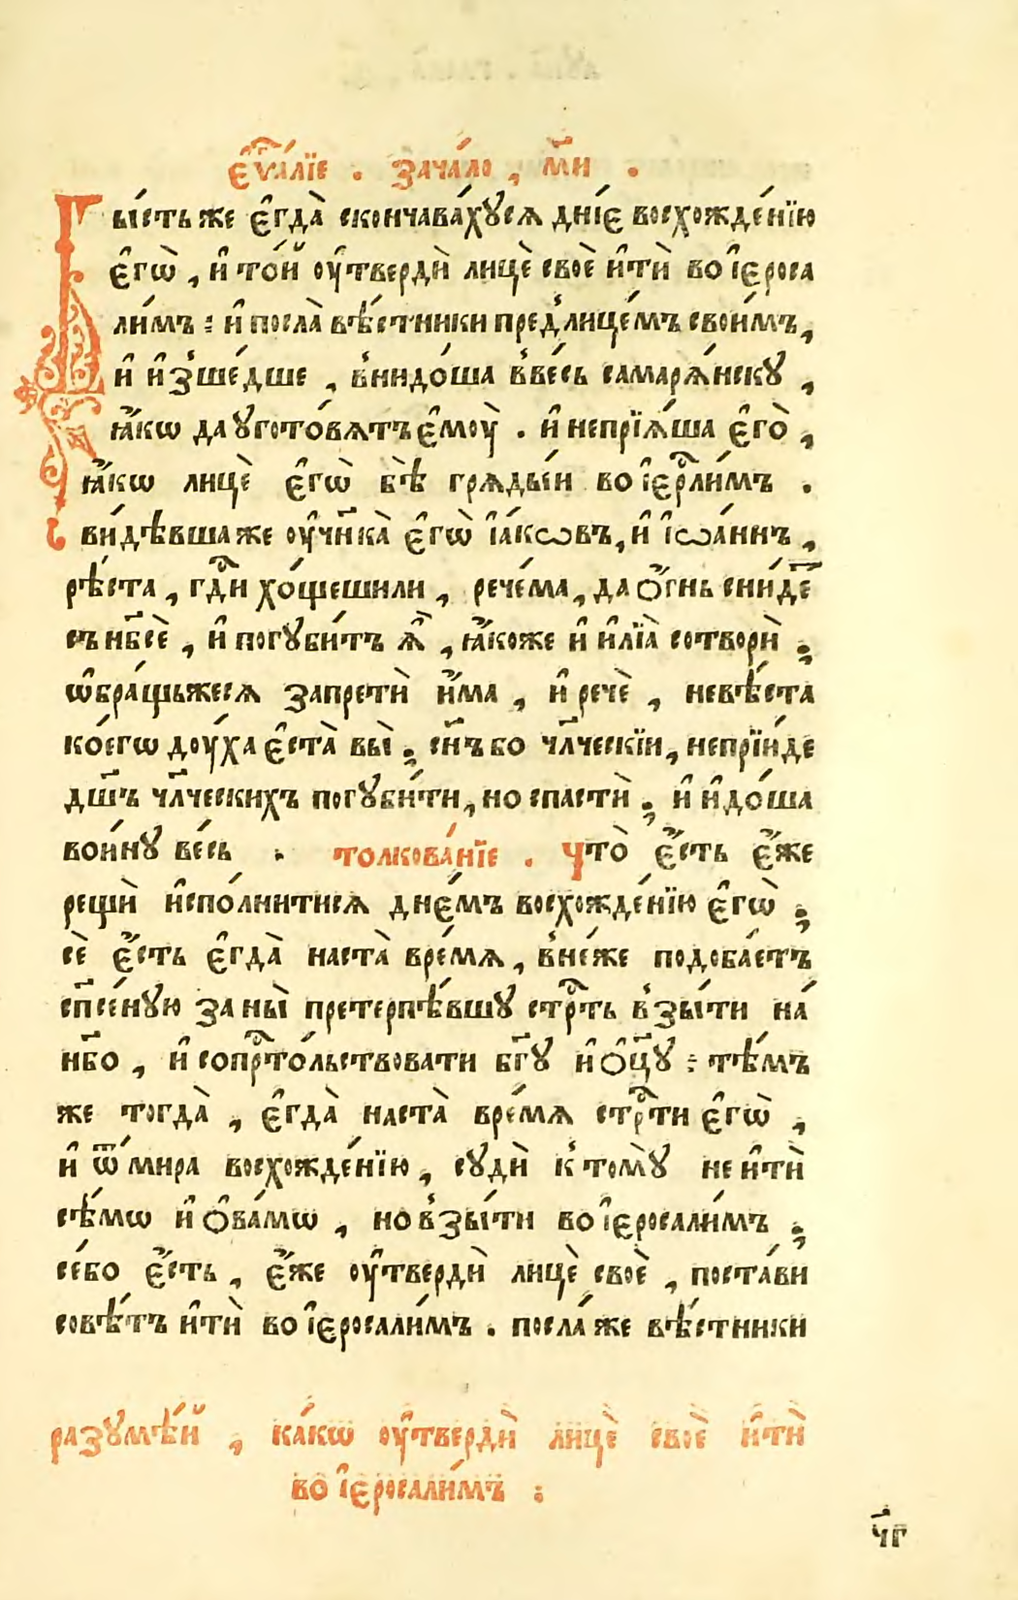 є҆ѵⷢ҇а́лїе . зача́ло , м҃и .
Бы́сть же є҆гда̀ скончава́хꙋсѧ дні́е восхожде́нїю
є҆гѡ̀ , и҆ то́й ᲂу҆твердѝ лицѐ своѐ и҆тѝ во і҆єроса
ли́мъ : и҆ посла̀ вѣ́стники пред̾лице́мъ свои́мъ ,
и҆ и҆з̾ше́дше , в̾нидо́ша в̾ве́сь самарѧ́нскꙋ ,
ꙗ҆́кѡ да ꙋгото́вѧтъ є҆мᲂу̀ . и҆ непрїѧ́ша є҆го̀ ,
ꙗ҆́кѡ лицѐ є҆гѡ̀ бѣ̀ грѧды́и во і҆єрⷭ҇ли́мъ .
ви́дѣвша же ᲂу҆чн҃ка̀ є҆гѡ̀ і҆а́кѡвъ , и҆ і҆ѡа́ннъ ,
рѣ́ста , гдⷭ҇и хо́щешили , рече́ма , да ѻ҆́гнь сни́де
съ нб҃сѐ , и҆ погꙋби́тъ ѧ҆̀ , ꙗ҆́коже и҆ и҆лїа̀ сотворѝ ;
ѡ҆бра́щьжесѧ запретѝ и҆́ма , и҆ речѐ , невѣ́ста
ко́егѡ дᲂу́ха є҆ста̀ вы̀ ; сн҃ъ бо чл҃ческїи , непрїи́де
дш҃ъ чл҃ческихъ погꙋби́ти , но спастѝ ; и҆ и҆до́ша
вои́нꙋ ве́сь . толкова́нїе . Что̀ є҆́сть є҆́же
рещѝ и҆спо́лнитисѧ дне́мъ восхожде́нїю є҆гѡ̀ ;
сѐ є҆́сть є҆гда̀ наста̀ вре́мѧ , в̾не́же подоба́етъ
сп҃се́нꙋю за ны̀ претерпѣ́вшꙋ стрⷭ҇ть в̾зы́ти на́
нб҃о , и҆ сопрⷭ҇то́льствовати бг҃ꙋ и҆ ѻ҆ц҃ꙋ : тѣ́мъ
же тогда̀ , є҆гда̀ наста̀ вре́мѧ стрⷭ҇ти є҆гѡ̀ ,
и҆ ѿ ми́ра восхожде́нїю , сꙋдѝ к̾ томꙋ̀ не и҆тѝ
сѣ́мѡ и҆ ѻ҆ва́мѡ , но в̾зы́ти во і҆єросали́мъ ;
се́бо є҆́сть , є҆́же ᲂу҆твердѝ лицѐ своѐ , поста́ви
совѣ́тъ и҆тѝ во і҆єросали́мъ . посла́ же вѣ́стники
разꙋмѣ́й , ка́кѡ ᲂу҆твердѝ лицѐ своѐ и҆тѝ
во і҆єросали́мъ :
ч҃г